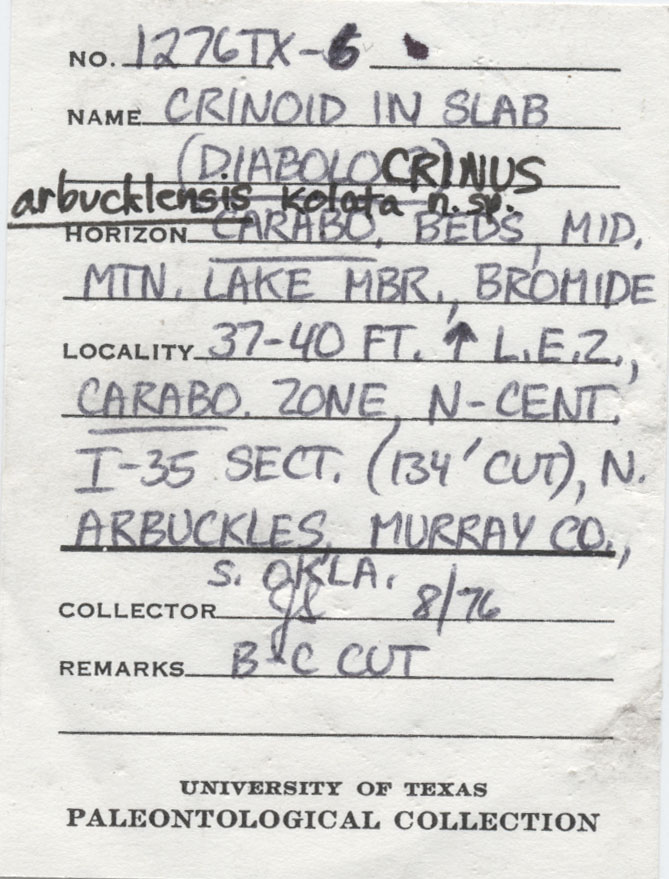 NO. 1276TX-6
NAME CRINOID IN SLAB
(DIABOLOCRINUS
arbucklensis Kolata n.sp.
HORIZON CARABO. BEDS, MID.
MTN. LAKE MBR., BROMIDE
LOCALITY 37-40 FT. ↑ L.E.Z.,
CARABO. ZONE, N-CENT.
I-35 SECT. (134' CUT), N.
ARBUCKLES, MURRAY CO.,
S. OKLA.
COLLECTOR 8/76
REMARKS B-C CUT
UNIVERSITY OF TEXAS
PALEONTOLOGICAL COLLECTION